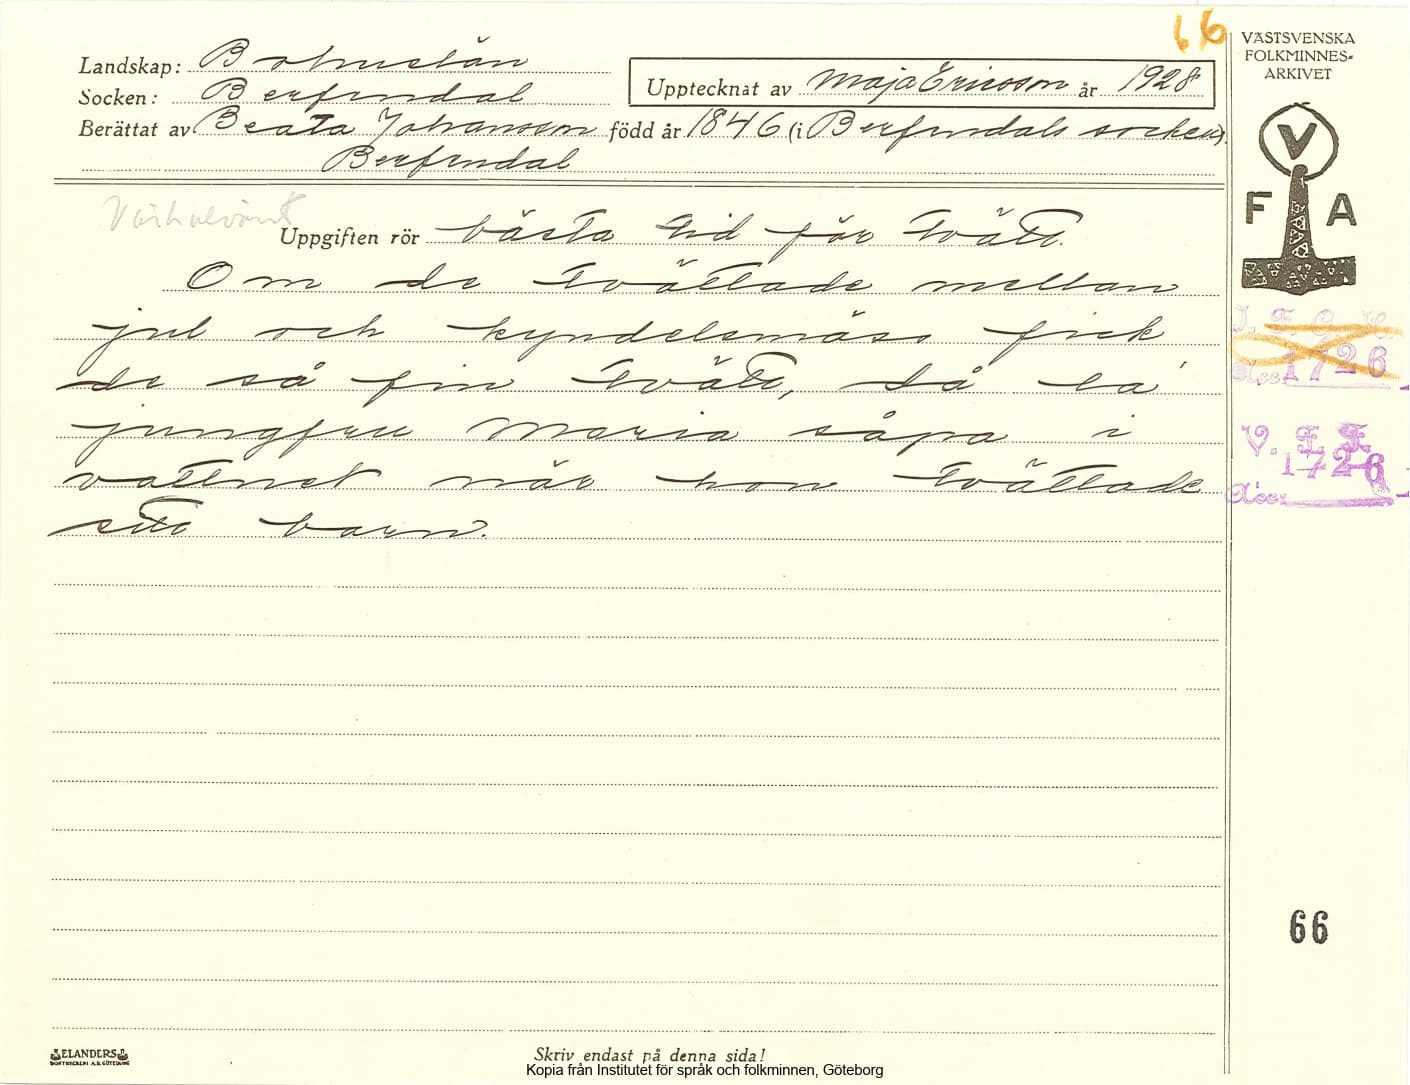 66
VÄSTSVENSKA
FOLKMINNES-
ARKIVET
Landskap: Bohuslän
Socken: Berfendal
Upptecknat av Maja Ericsson år 1928
Berättat av Beata Johansson född år 1846 (i Berfendals socken).
Berfendal
V
F A
Uppgiften rör bästa tid för tvätt.
Om de tvättade mellan
jul och kyndelsmäss fick
de så fin tvätt, då la'
jungfru Maria såpa i
vattnet när hon tvättade
sitt barn.
I. F. G. H.
Acc: 1726
V. F. F.
1726
Acc:
66
ELANDERS
BOKTRYCKERI A.B. GÖTEBORG
Skriv endast på denna sida!
Kopia från Institutet för språk och folkminnen, Göteborg